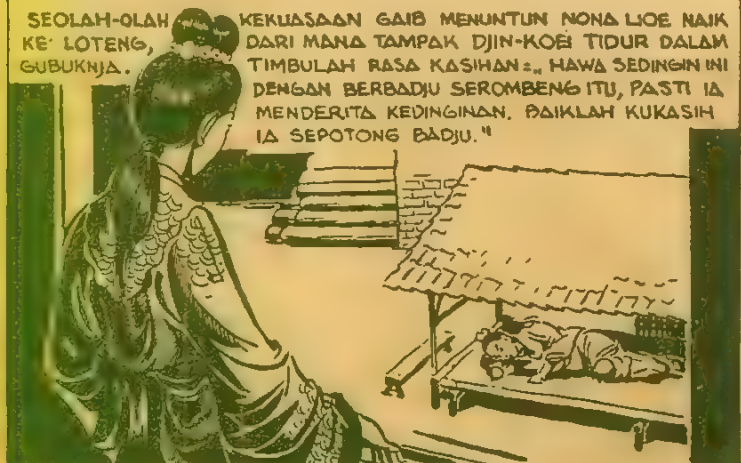 SEOLAH-OLAH KEKUASAAN GAIB MENUNTUN NONA LIOE NAIK
KE LOTENG, DARI MANA TAMPAK DJIN-KOEI TIDUR DALAM
GUBUKNJA. TIMBULAH RASA KASIHAN: „HAWA SEDINGIN INI
DENGAN BERBADJU SEROMBENG ITU, PASTI IA
MENDERITA KEDINGINAN. BAIKLAH KUKASIH
IA SEPOTONG BADJU."